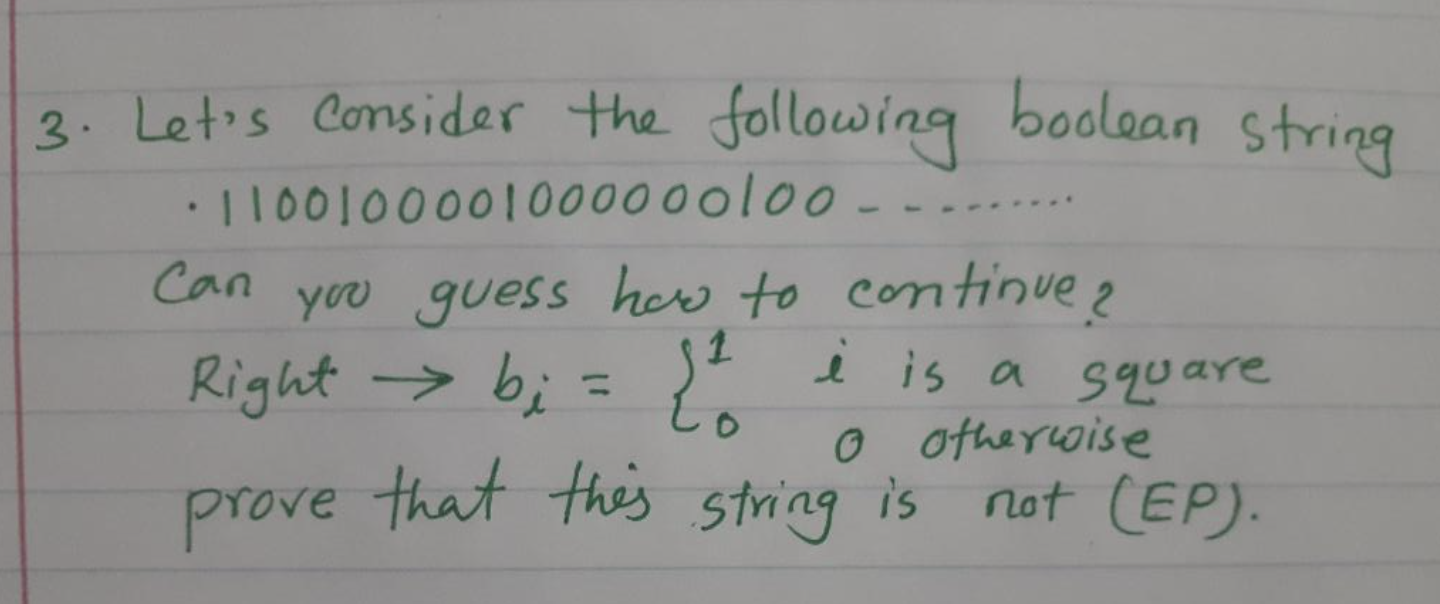 3. Let's Consider the following boolean string
.11001000010000000100 - - - - ......
Can you guess how to continue?
Right → bᵢ = { 1 i is a square
0 0 otherwise
prove that this string is not (EP).